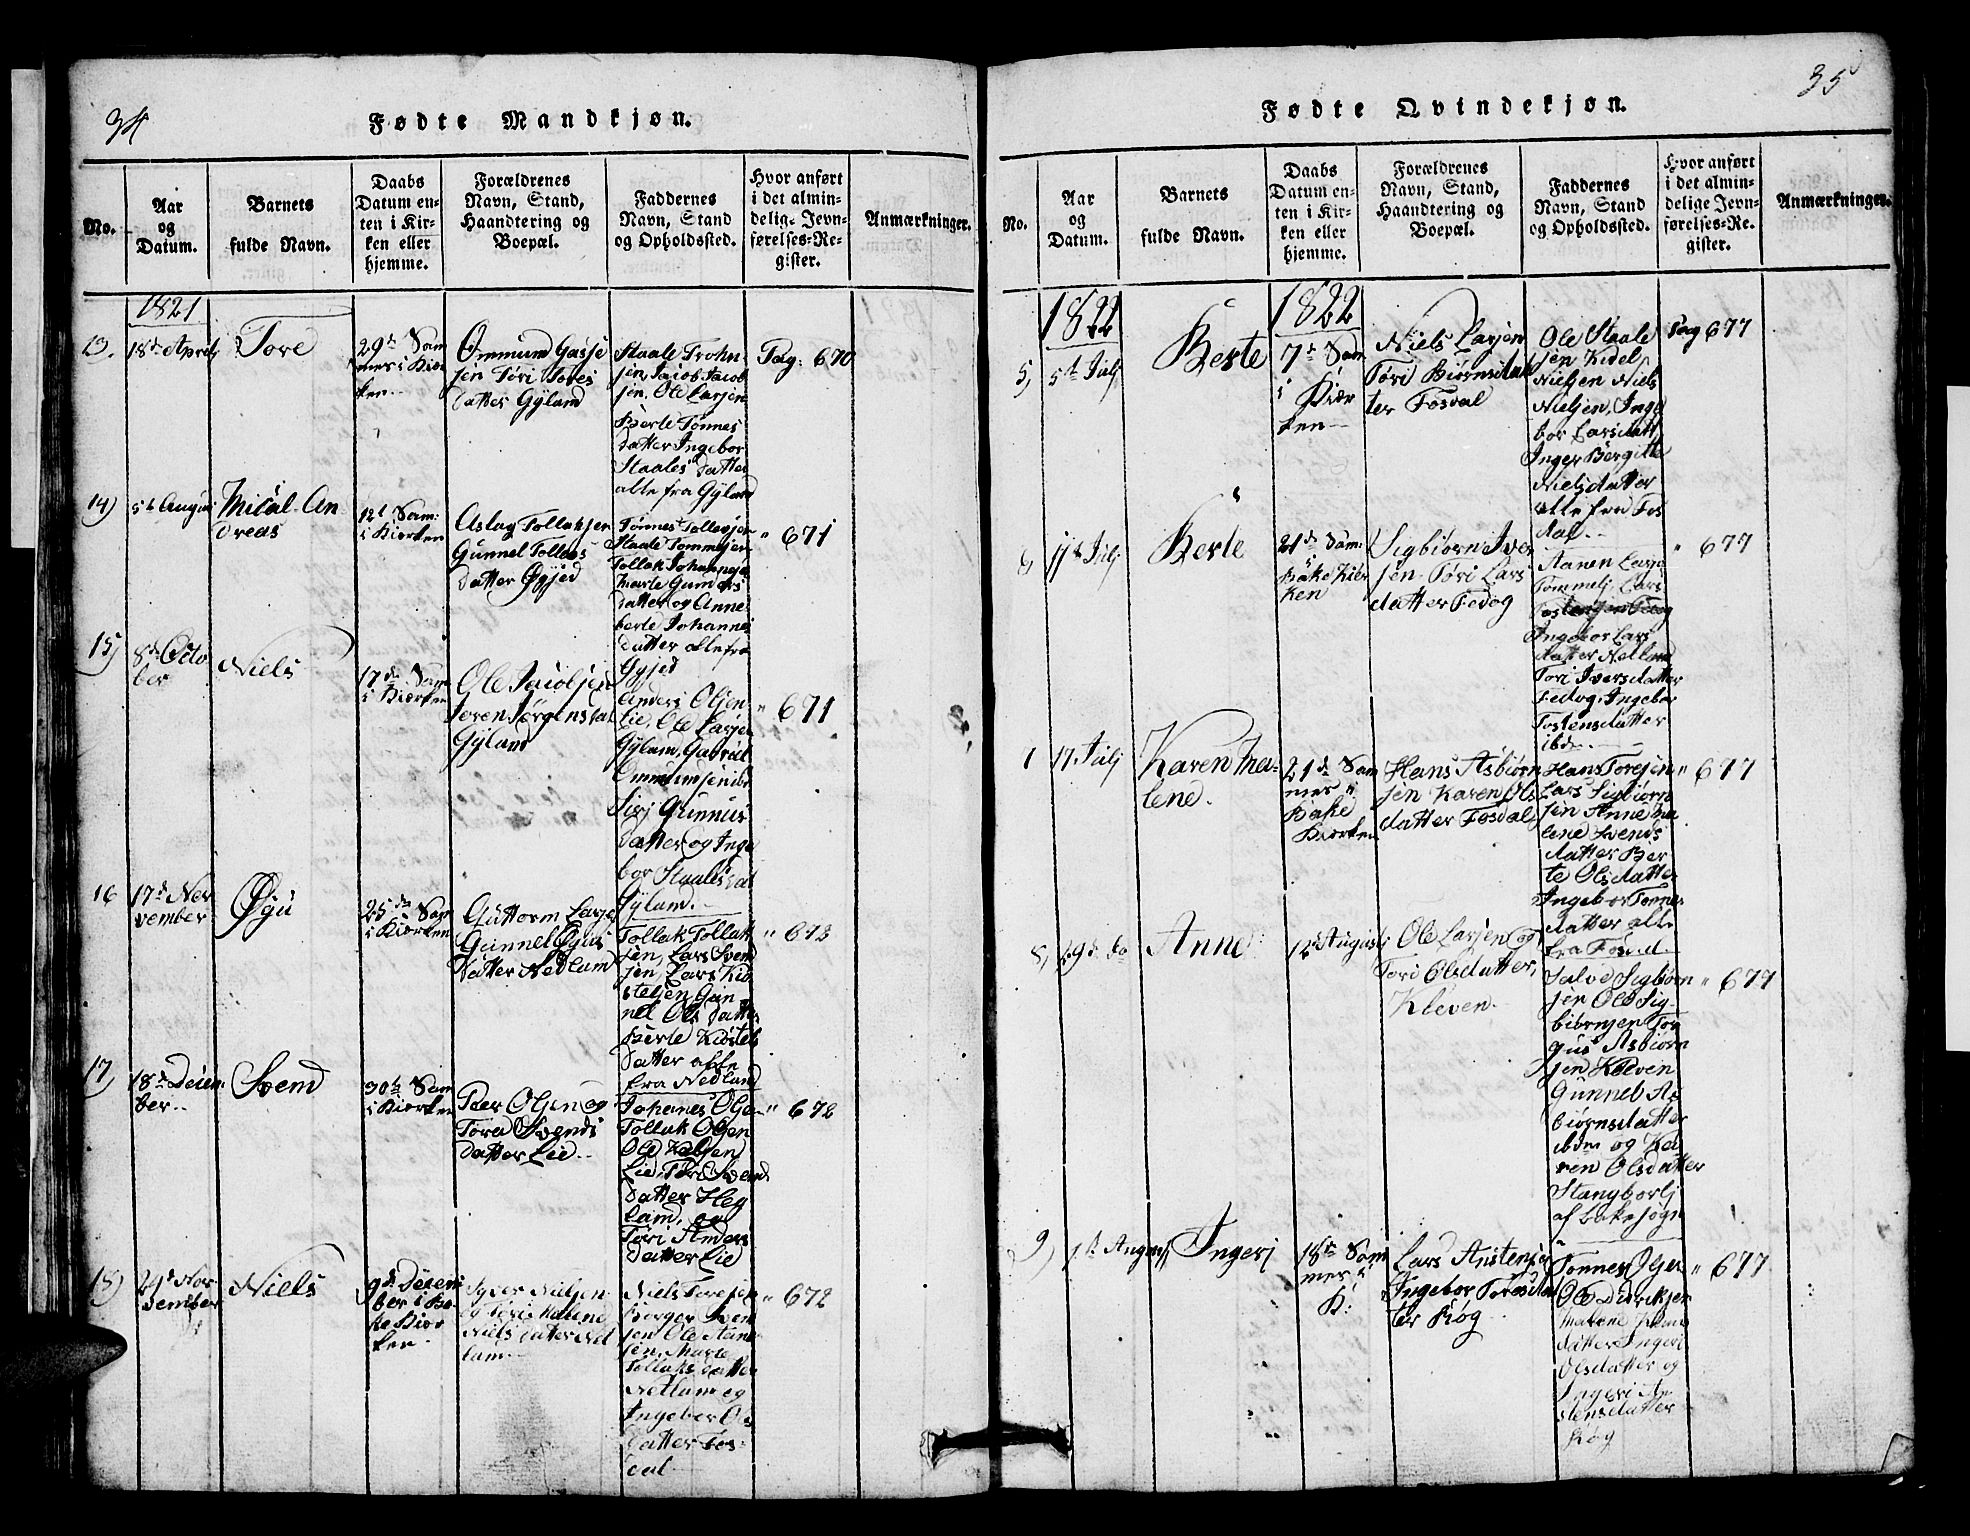 34
Fødte Mandkjøn.
No.
Aar
og
Datum.
Barnets
fulde Navn.
Daabs
Datum en-
ten i Kir-
ken eller
hjemme.
Forældrenes
Navn, Stand,
Haandtering og
Boepæl.
Faddernes
Navn, Stand
og Opholdssted.
Hvor anført
i det almin-
delig. Jevn-
førelses-Re-
gister.
Anmærkninger.
1821
13.
18de April
Tore
29de Sam
mes i Kior
ken
Ommund Gasse
sen Tøri Tores
datter Gyland
Staale Trohn
sen, Jacob Jacob
sen, Ole Larsen
Berte Tønnes
datter Ingebor
Staales datter
alle fra Gyland
Pag: 670
14)
5te August
Mical An
dreas
12te Sam:
i Kiorken
Aslag Tollaksen
Gunnel Tollevs
datter Øysed
Tønnes Tollegsen
Staale Tommesen
Tollak Johannesen
Marte Gunders
datter og Anne
berte Johannes
datter alle fra
Øysed
" 671
15)
8de Octo
ber
Niels
17de Sam
i Kiorken
Ole Jacobsen
Seren Jørgensdat
Gyland
Anders Olsen
Lie, Ole Larsen
Gylam, Gabriel
Ommundsen ibd
Siri Gunnus
datter og Inge
bor Staalesdat
Gyland.
" 671
16
17de No
vember
Øyu
25de Sam
i Kiorken
Guttorm Larsen
Gunnel Øyus
datter Nedland
Tollak Tollak
sen, Lars Svend
sen, Lars Kid
telsen Gun
nel Ols datter
Berte Kidtels
datter alle
fra Nedland
" 672
17)
18de Decem
ber
Svend
30te Sam
i Kiorken
Peer Olsen og
Tora Svends
datter Lie
Johanes Olsen
Tollak Olsen
Ole Kjelsen
Lie, Tøri Svends
datter Heg
land, og
Tøri Anders
datter Lie
" 672
18)
24de No
vember
Niels
9de Decem
ber i Ba
ke Kior
ken
Syver Nielsen
og Tøri Malene
Niels datter Net
lam
Niels Toresen
Borger Sven
sen Ole Aane
sen, Marte
Tollaks datter
Netlam og
Ingebor Ols
datter Fos-
dal
" 672
35
Fødte Qvindekjøn.
No.
Aar
og
Datum.
Barnets
fulde Navn.
Daabs
Datum en-
ten i Kir-
ken eller
hjemme.
Forældrenes
Navn, Stand,
Haandtering og
Boepæl.
Faddernes
Navn, Stand
og Opholdssted.
Hvor anført
i det almin-
delige Jevn-
førelses-Re-
gister.
Anmærkninger.
1822
1822
5,
5te Julj
Berte
7de Sam
i Kior
ken
Niels Larsen
Tøri Biørnsdat
ter Fosdal
Ole Staale
sen Kidel
Nielsen Niels
Nielsen, Inge
bor Larsdatt
Inger Bergitte
Nielsdatter
alle fra Fos
dal.
Pag 677
6,
11te Julj
Berte
21de Sam:
i
Bake Kior
ken
Sigbiørn Iver
sen Tøri Lars
datter Fedog
Aanen Lars
Tommelj Lars
Tostensen Fedog
Ingebor Lars
datter Netland
Tøri Iversdatter
Fedog, Ingebor
Tostensdatter
ibd
" 677
17 Julj
Karen Ma-
lene.
21de Sam
mes i
Bake
Kiorken
Hans Asbiørn
sen Karen Ols
datter Fosdal
Hans Toresen
Lars Sigbiørn
sen Anne Ma
lene Svends
datter Ber
te Olsdatter
Ingebor Tønnes
datter alle
fra Fosdal
" 677
8,
29de do
Anne
12te August
Ole Larsen og
Tøri Olsdatter,
Kleven
Salve Sigbiørn
sen Ole Sig-
biørnsen Tor
gus Asbiørn
sen Kleven
Gunnel As
biørnsdatter
ibdm og Ka
ren Olsdatter
Stangborlj
af bakesogn
" 677
9)
1te August
Ingerj
18de Sam
mes i
K:
Lars Anstensen
Ingebor Toresdat
ter Røg
Tonnes Olsen
Ole Didriksen
Malene
datter Ingeri
Olsdatter og
Ingeri An
stensdatter
Røg
" 677